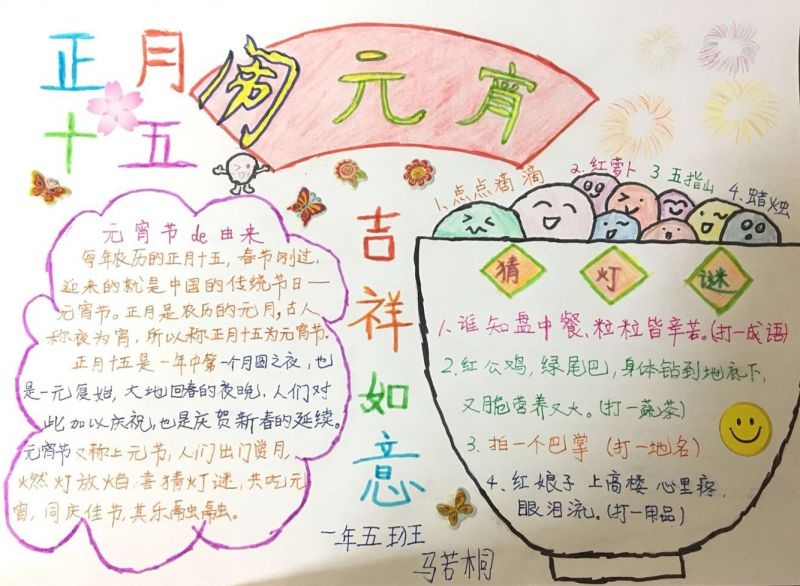 正月
十五
闹元宵
元宵节de由来
每年农历的正月十五,春节刚过,
迎来的就是中国的传统节日—
元宵节。正月是农历的元月,古人
称夜为宵,所以称正月十五为元宵节.
正月十五是一年中第一个月圆之夜,也
是一元复始,大地回春的夜晚,人们对
此加以庆祝,也是庆贺新春的延续。
元宵节又称上元节,人们出门赏月,
燃灯放焰,喜猜灯谜,共吃元
宵,同庆佳节,其乐融融。
吉祥如意
一年五班
马若桐
1.点点滴滴
2.红萝卜
3五指山
4.蜡烛
猜灯谜
1.谁知盘中餐、粒粒皆辛苦。(打一成语)
2.红公鸡,绿尾巴,身体钻到地底下,
又脆营养又大。(打一蔬菜)
3.拍一个巴掌(打一地名)
4.红娘子上高楼心里疼,
眼泪流。(打一用品)